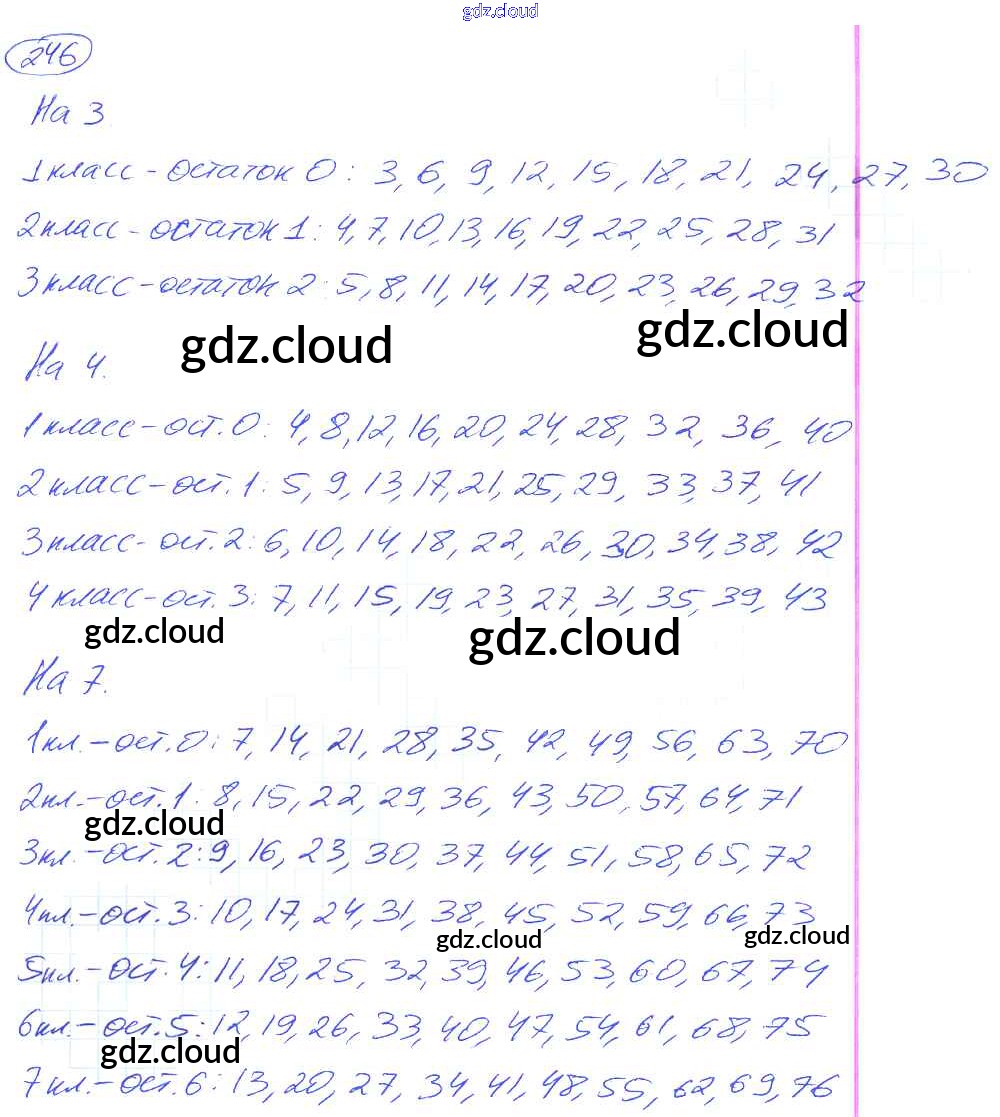 gdz.cloud
246
На 3.
1 класс - остаток 0: 3, 6, 9, 12, 15, 18, 21, 24, 27, 30
2 класс - остаток 1: 4, 7, 10, 13, 16, 19, 22, 25, 28, 31
3 класс - остаток 2: 5, 8, 11, 14, 17, 20, 23, 26, 29, 32
gdz.cloud gdz.cloud
На 4.
1 класс - ост. 0: 4, 8, 12, 16, 20, 24, 28, 32, 36, 40
2 класс - ост. 1: 5, 9, 13, 17, 21, 25, 29, 33, 37, 41
3 класс - ост. 2: 6, 10, 14, 18, 22, 26, 30, 34, 38, 42
4 класс - ост. 3: 7, 11, 15, 19, 23, 27, 31, 35, 39, 43
gdz.cloud gdz.cloud
На 7.
1 кл. - ост. 0: 7, 14, 21, 28, 35, 42, 49, 56, 63, 70
2 кл. - ост. 1: 8, 15, 22, 29, 36, 43, 50, 57, 64, 71
gdz.cloud
3 кл. - ост. 2: 9, 16, 23, 30, 37, 44, 51, 58, 65, 72
4 кл. - ост. 3: 10, 17, 24, 31, 38, 45, 52, 59, 66, 73
gdz.cloud gdz.cloud
5 кл. - ост. 4: 11, 18, 25, 32, 39, 46, 53, 60, 67, 74
6 кл. - ост. 5: 12, 19, 26, 33, 40, 47, 54, 61, 68, 75
gdz.cloud
7 кл. - ост. 6: 13, 20, 27, 34, 41, 48, 55, 62, 69, 76